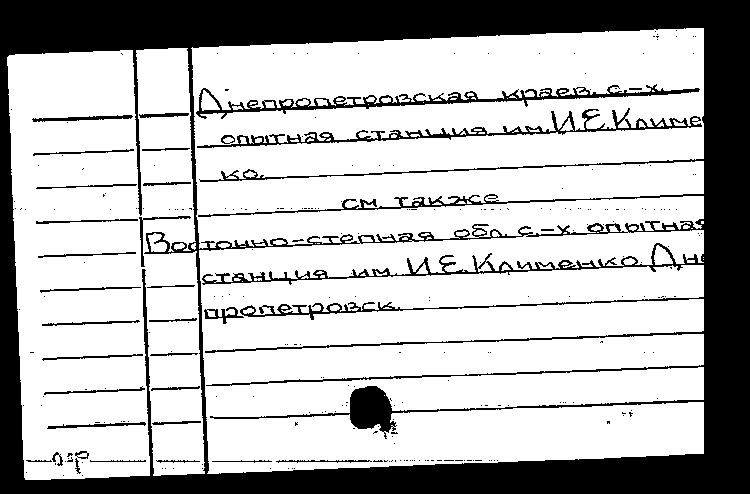 Днепропетровская краев. с.-х.
опытная станция им. И.Е. Климен
ко.
см. также
Восточно-степная обл. с.-х. опытная
станция им. И.Е. Клименко. Дне
пропетровск.